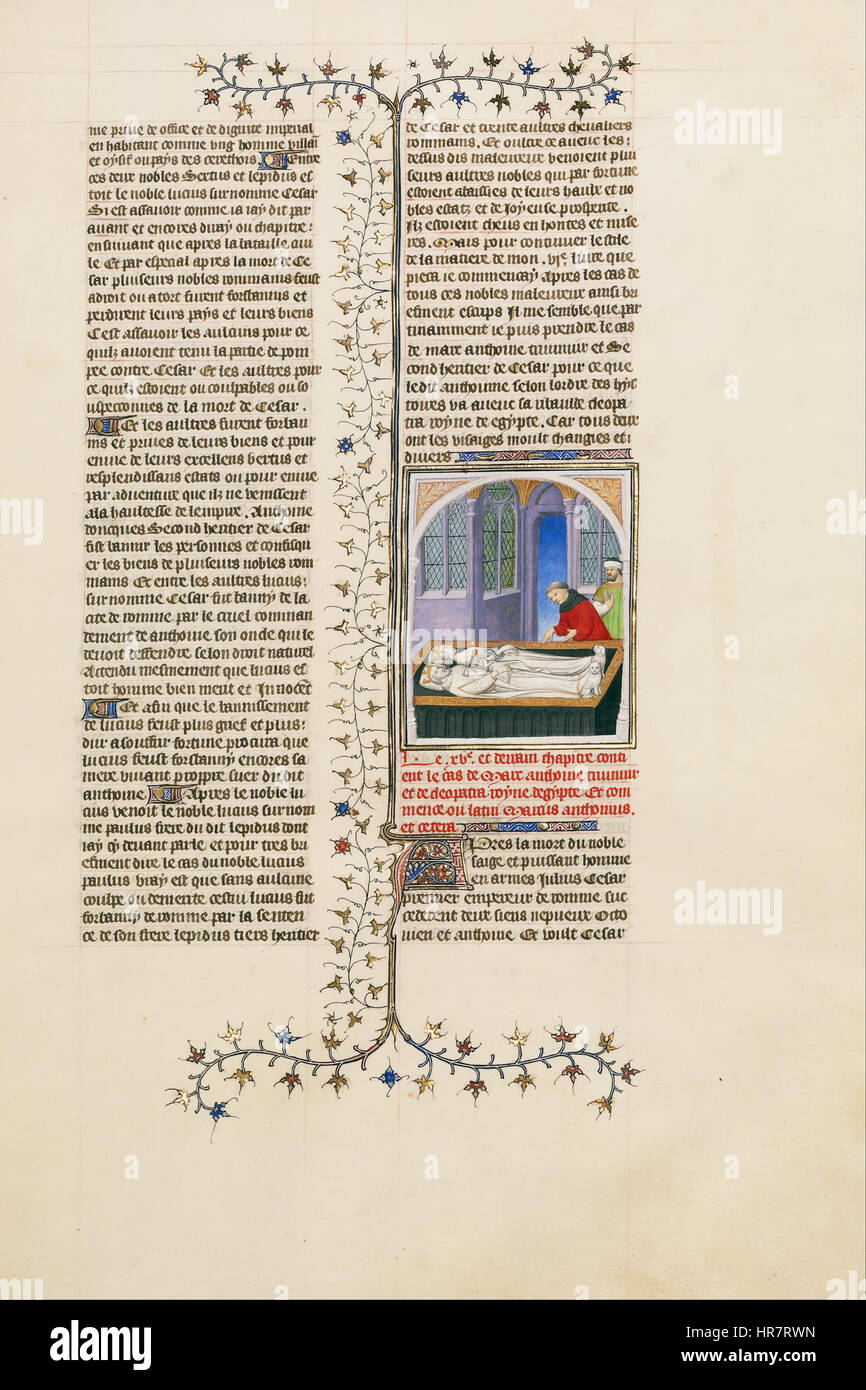 me priue de office et de dignite imperial
en habitant comme ung homme villai
et oysif ou pays des cerethois. Entre
ces deux nobles Sertus et lepidus es
toit le noble lucius surnomme Cesar
Si est assauoir comme ia iay dit par
auant et encores diray ou chapitre
ensuiuant que apres la bataille ciui
le Et par especial apres la mort de Ce
sar pluiseurs nobles rommains feust
adroit ou atort furent forbannis et
perdirent leurs pays et leurs biens
Cest assauoir les aulcuns pour ce
quilz auoient tenu la partie de pom
pee contre Cesar Et les aultres pour
ce quilz estoient ou coulpables ou so
uspeconnes de la mort de Cesar.
Et les aultres furent forban
nis et priues de leurs biens et pour
enuie de leurs excellens vertus et
resplendissans estats ou pour enuie
par aduenture que ilz ne venissent
ala haultesse de lempire. Anthoine
doncques Second heritier de Cesar
fist bannir les personnes et confisqu
er les biens de pluiseurs nobles rom
mains Et entre les aultres lucius
surnomme Cesar fut banny de la
cite de romme par le cruel comman
dement de anthoine son oncle qui le
deuoit deffendre selon droit naturel
Attendu mesmement que lucius es
toit homme bien meur et Innocent
Et afin que le bannissement
de lucius feust plus grief et plus
dur a souffrir fortune procura que
lucius feust forbanny encores sa
mere viuant propre suer du dit
anthoine. Apres le noble lu
cius venoit le noble lucius surnom
me paulus frere du dit lepidus dont
iay cy deuant parle et pour tres bri
efment dire le cas du noble lucius
paulus vray est que sans aulcune
coulpe ou demerite cestui lucius fut
forbanny de romme par la senten
ce de son frere lepidus tiers heritier
de Cesar et trente aultres cheualiers
rommains. Et oultre ce auec les
dessus dis maleureux venoient plui
seurs aultres nobles qui par fortune
estoient abaissies de leurs haulx et no
bles estatz et de joyeuse prosperite.
Ilz estoient cheus en hontes et mise
res. Mais pour continuer le stile
de la matiere de mon. vie. liure que
pieca ie commencay apres les cas de
tous ces nobles maleureux ainsi bri
efment escrips Il me semble que par
tinamment ie puis prendre le cas
de marc anthoine triumuir et Se
cond heritier de Cesar pour ce que
ledit anthoinne selon lordre des hys
toires va auec sa ribaulde cleopa
tra royne de egypte. Car tous deux
ont les visaiges moult changies et
diuers.
Le. xve. et derrain chapitre conti
ent le cas de Marc anthoine triumuir
et de cleopatra royne degypte. Et com
mence ou latin Marcus anthonius.
et cetera
Apres la mort du noble
saige et puissant homme
en armes Julius Cesar
premier empereur de romme suc
cederent deux siens nepueux Octo
uien et anthoine Et voult Cesar
alamy
alamy
alamy
a
a
a
a
alamy
Image ID: HR7RWN
www.alamy.com